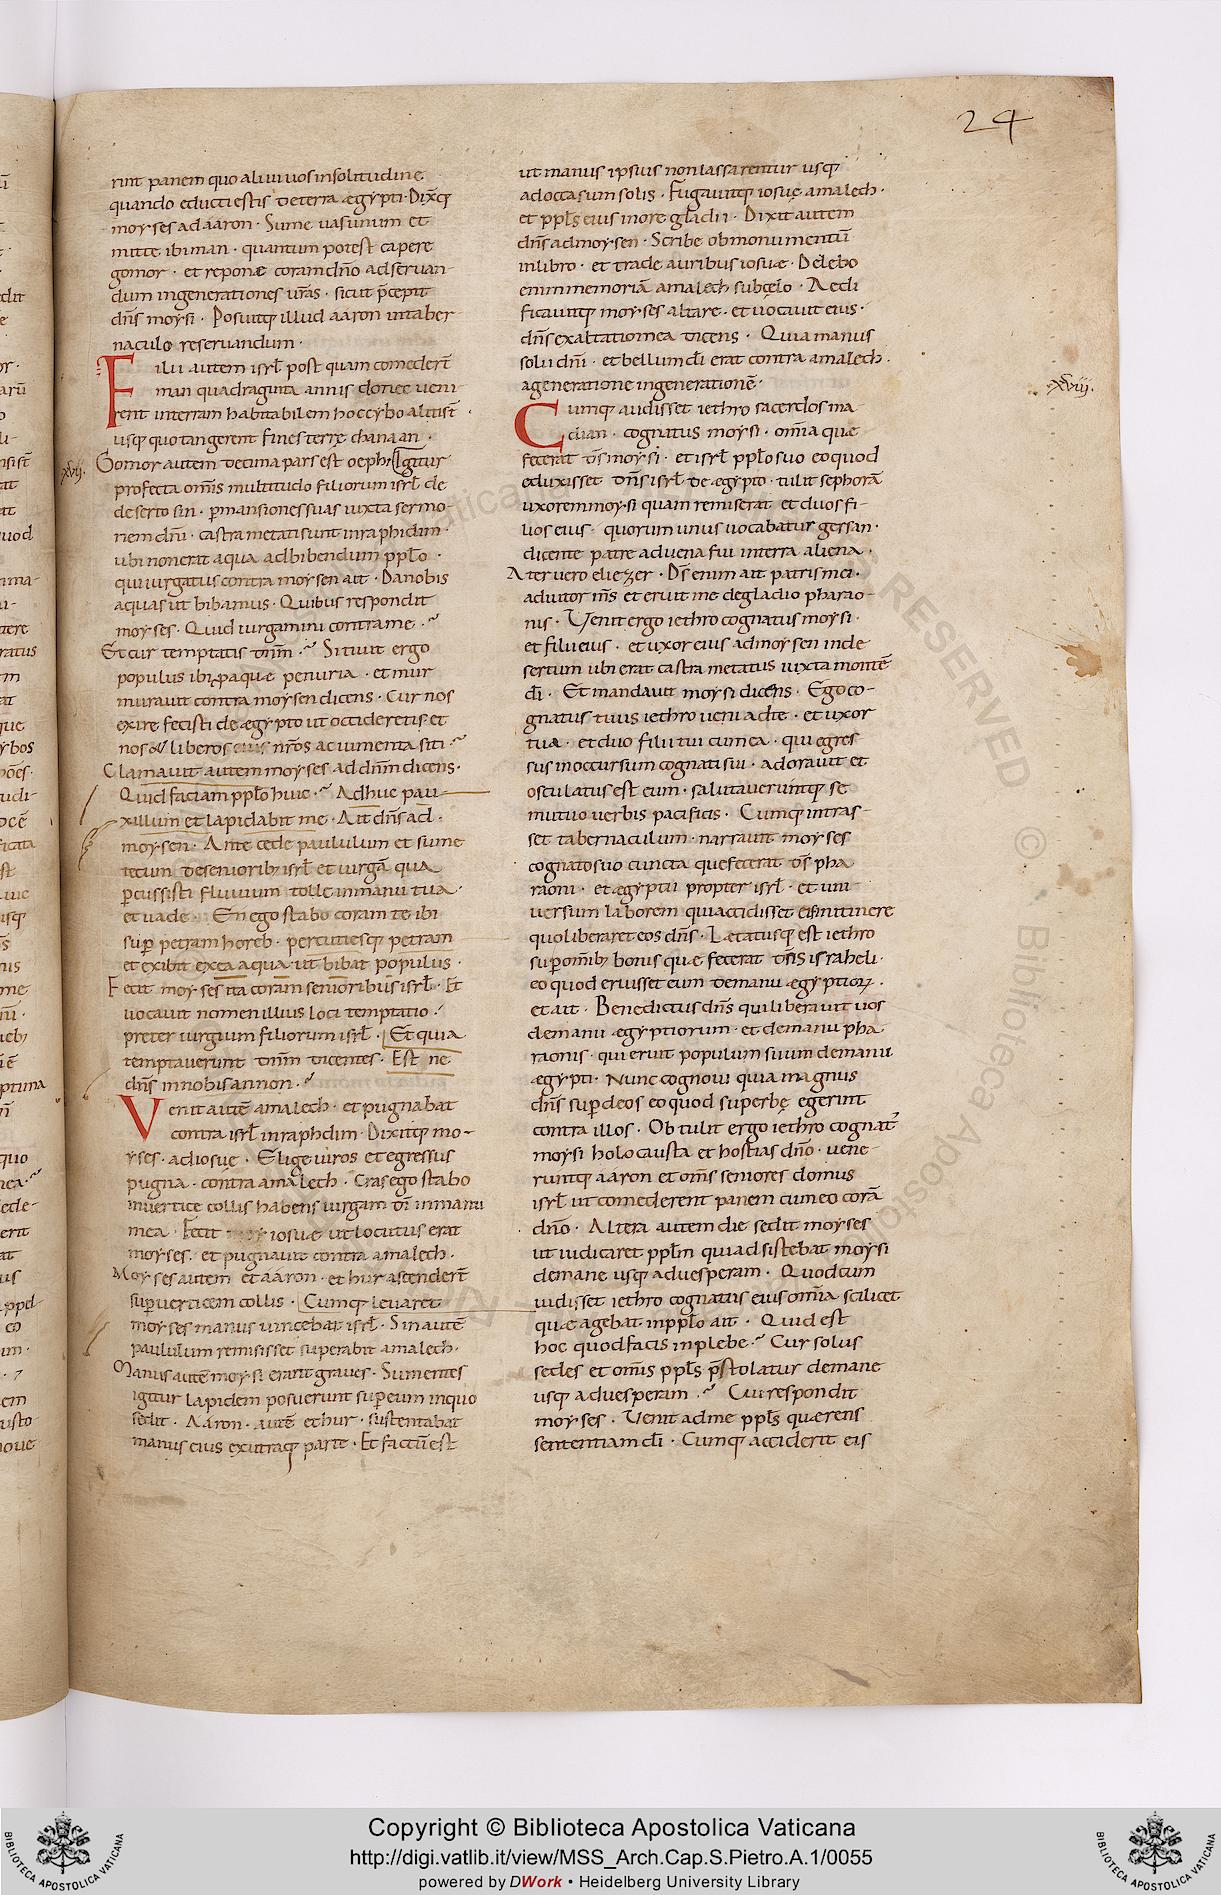 24
rint panem quo alui uos insolitudine
quando educti estis deterra ægypti · Dixitq;
moyses ad aaron · Sume uasunum et
mitte ibi man · quantum potest capere
gomor · et reponæ coram dño ad seruan-
dum ingenerationes urãs · sicut p̃cepit
dñs moysi · Posuitq; illud aaron intaber
naculo reseruandum ·
Filii autem isrł post quam comeder̃
man quadraginta annis donec ueni
rent interram habitabilem hoc cybo aliti st̃ ·
usq; quo tangerent fines terrę chanaan ·
xvii.
Gomor autem decima pars est oephi Igitur
profecta om̃is multitudo filiorum isrł de
deserto sin · p mansiones suas iuxta sermo-
nem dñi · castra metati sunt in raphidim ·
ubi non erat aqua adbibendum ppło ·
qui iurgatus contra moysen ait · Da nobis
aquas ut bibamus · Quibus respondit
moyses · Quid iurgamini contra me ·
Et cur temptatis dñm · Sitiuit ergo
populus ibi p aquæ penuria · et mur
murauit contra moysen dicens · Cur nos
exire fecisti de ægypto ut occideretis et
nos & liberos eius nr̃os ac iumenta siti ·
Clamauit autem moyses ad dñm dicens ·
Quid faciam ppło huic · Adhuc pau
xillum et lapidabit me · Ait dñs ad ·
moysen · Ante cede paululum et sume
tecum deseniorib; isrł et uirgã qua
p̱cussisti fluuium tolle inmanu tua ·
et uade · En ego stabo coram te ibi
sup̱ petram horeb · percutiesq; petram
et exibit exea aqua · ut bibat populus ·
Fecit moyses ita coram senioribus isrł · Et
uocauit nomen illius loci temptatio ·
preter iurgium filiorum isrł · Et quia
temptauerunt dñm dicentes · Est ne
dñs innobis an non ·
Venit autẽ amalech · et pugnabat
contra isrł inraphdim · Dixitq; mo-
yses · ad iosue · Elige uiros et egressus
pugna · contra amalech · Cras ego stabo
inuertice collis habens uirgam dĩ inmanu
mea · Fecit iosuæ ut locutus erat
moyses · et pugnauit contra amalech ·
Moyses autem et aaron · et hur ascender̃t
sup̱ uerticem collis · Cumq; leuaret
moyses manus uincebat isrł · Sin autẽ
paululum remisisset superabat amalech ·
Manus autẽ moysi erant graues · Sumentes
igitur lapidem posuerunt sup̱ eum inquo
sedit · Aaron · autẽ et hur · sustentabat
manus eius exutraq; parte · Et factũ est
ut manus ipsius non lassarentur usq;
ad occasum solis · Fugauitq; iosuę amalech ·
et ppłs eius more gladii · Dixit autem
dñs ad moysen · Scribe ob monumentũ
inlibro · et trade auribus iosuæ · Delebo
enim memoriã amalech sub cęlo · Aedi
ficauitq; moyses altare · et uocauit eius ·
dñs exaltatio mea dicens · Quia manus
solii dñi · et bellum dĩ erat contra amalech ·
a generatione ingenerationẽ ·
xviii.
Cumq; audisset iethro sacerdos ma
dian · cognatus moysi · om̃ia quæ
fecerat dñs moysi · et isrł ppło suo eo quod
eduxisset dñs isrł de ægypto · tulit sephorã
uxorem moysi quam remiserat et duos fi-
lios eius · quorum unus uocabatur gersan ·
dicente patre aduena fui interra aliena ·
Alter uero eliezer · Ds̃ enim ait patris mei ·
adiutor m̃s et eruit me degladio pharao-
nis · Venit ergo iethro cognatus moysi ·
et filii eius · et uxor eius ad moysen inde
sertum ubi erat castra metatus iuxta montẽ
dĩ · Et mandauit moysi dicens · Ego co-
gnatus tuus iethro ueni adte · et uxor
tua · et duo filii tui cum ea · qui egres
sus inoccursum cognati sui · adorauit et
osculatus est eum · salutauerumtq; se
mutuo uerbis pacificis · Cumq; intras-
set tabernaculum · narrauit moyses
cognato suo cuncta que fecerat dñs pha
raoni · et ægyptii propter isrł · et uni
uersum laborem qui accidisset eis in itinere
quo liberaret eos dñs · Lætatusq; est iethro
sup̱ om̃ib; bonis quæ fecerat dñs israheli ·
eo quod eruisset eum demanu ægyptioꝝ ·
et ait · Benedictus dñs qui liberauit uos
demanu ægyptiorum · et demanu pha
raonis · qui eruit populum suum demanu
ægypti · Nunc cognoui quia magnus
dñs sup̱ deos eo quod superbę egerint
contra illos · Obtulit ergo iethro cognat᾽
moysi holocausta et hostias dño · uene-
runtq; aaron et om̃s seniores domus
isrł ut comederent panem cum eo corã
dño · Altera autem die sedit moyses
ut iudicaret ppłm qui adsistebat moysi
demane usq; aduesperam · Quod cum
uidisset iethro cognatus eius om̃ia scilicet
quæ agebat inppło ait · Quid est
hoc quod facis inplebe · Cur solus
sedes et om̃is ppłs p̃stolatur demane
usq; aduesperam · Cui respondit
moyses · Venit ad me ppłs quærens
sententiam dĩ · Cumq; acciderit eis
Copyright © Biblioteca Apostolica Vaticana
http://digi.vatlib.it/view/MSS_Arch.Cap.S.Pietro.A.1/0055
powered by DWork • Heidelberg University Library